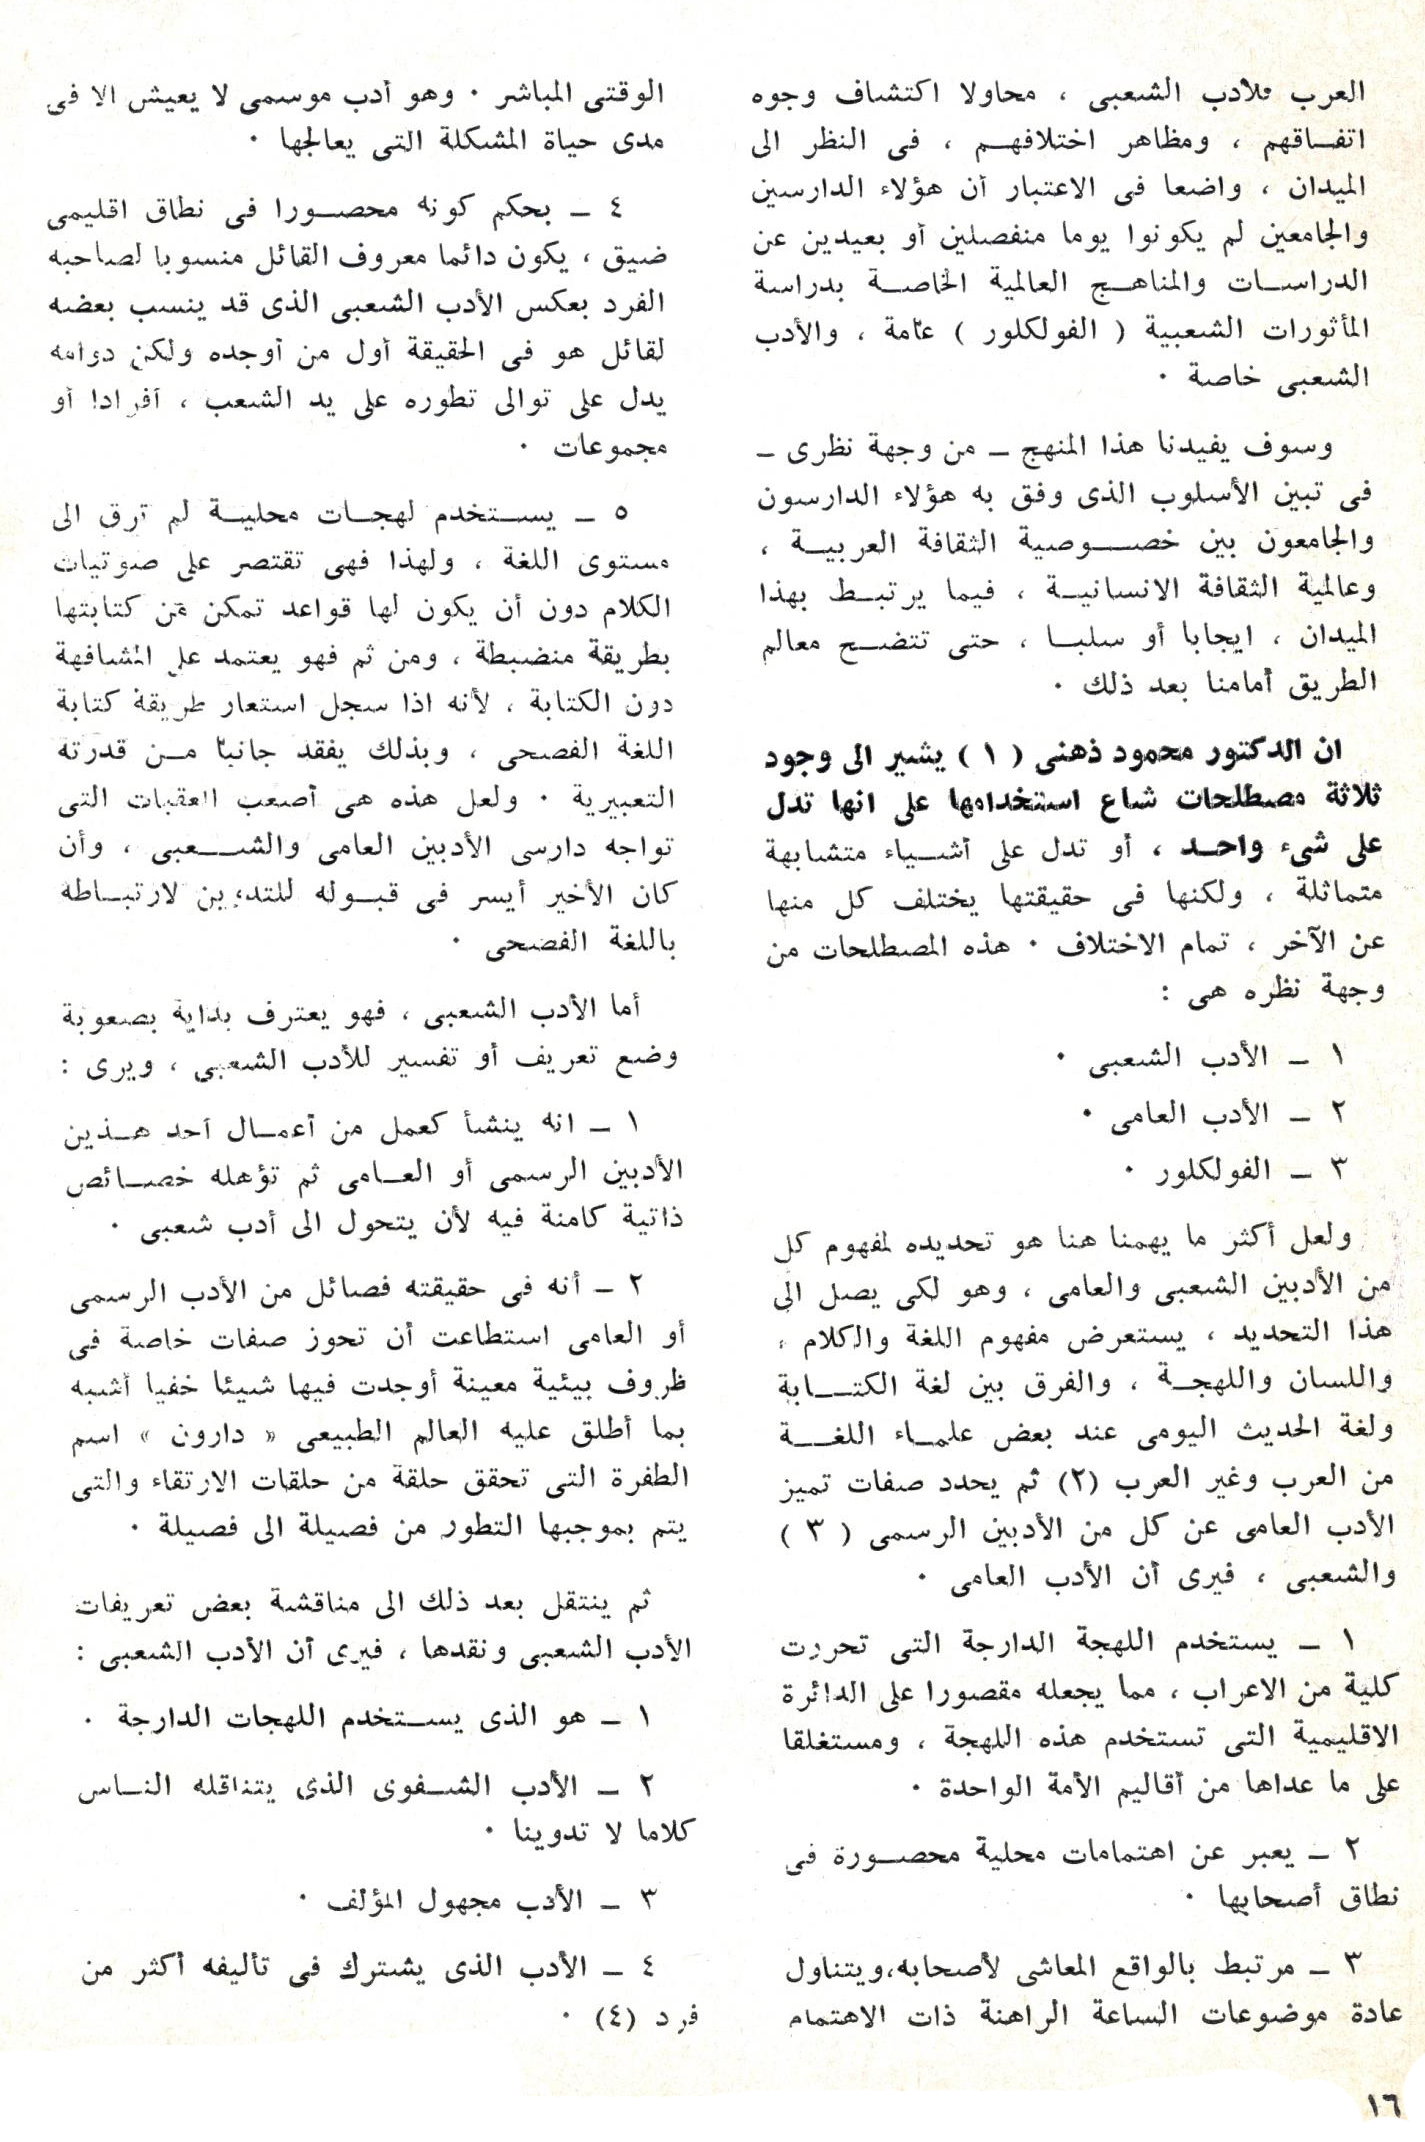 العرب للأدب الشعبى ، محاولا اكتشاف وجوه
اتفاقهم ، ومظاهر اختلافهم ، فى النظر الى
الميدان ، واضعا فى الاعتبار أن هؤلاء الدارسين
والجامعين لم يكونوا يوما منفصلين أو بعيدين عن
الدراسات والمناهج العالمية الخاصة بدراسة
المأثورات الشعبية ( الفولكلور ) عامة ، والأدب
الشعبى خاصة ٠
وسوف يفيدنا هذا المنهج ـ من وجهة نظرى ـ
فى تبين الأسلوب الذى وفق به هؤلاء الدارسون
والجامعون بين خصوصية الثقافة العربية ،
وعالمية الثقافة الانسانية ، فيما يرتبط بهذا
الميدان ، ايجابا أو سلبا ، حتى تتضح معالم
الطريق أمامنا بعد ذلك ٠
ان الدكتور محمود ذهنى ( ١ ) يشير الى وجود
ثلاثة مصطلحات شاع استخدامها على انها تدل
على شىء واحد ، أو تدل على أشياء متشابهة
متماثلة ، ولكنها فى حقيقتها يختلف كل منها
عن الآخر ، تمام الاختلاف ٠ هذه المصطلحات من
وجهة نظره هى :
١ ـ الأدب الشعبى ٠
٢ ـ الأدب العامى ٠
٣ ـ الفولكلور ٠
ولعل أكثر ما يهمنا هنا هو تحديده لمفهوم كل
من الأدبين الشعبى والعامى ، وهو لكى يصل الى
هذا التحديد ، يستعرض مفهوم اللغة والكلام ،
واللسان واللهجة ، والفرق بين لغة الكتابة
ولغة الحديث اليومى عند بعض علماء اللغة
من العرب وغير العرب (٢) ثم يحدد صفات تميز
الأدب العامى عن كل من الأدبين الرسمى ( ٣ )
والشعبى ، فيرى أن الأدب العامى ٠
١ ـ يستخدم اللهجة الدارجة التى تحررت
كلية من الاعراب ، مما يجعله مقصورا على الدائرة
الاقليمية التى تستخدم هذه اللهجة ، ومستغلقا
على ما عداها من أقاليم الأمة الواحدة ٠
٢ ـ يعبر عن اهتمامات محلية محصورة فى
نطاق أصحابها ٠
٣ ـ مرتبط بالواقع المعاشى لأصحابه،ويتناول
عادة موضوعات الساعة الراهنة ذات الاهتمام
الوقتى المباشر ٠ وهو أدب موسمى لا يعيش الا فى
مدى حياة المشكلة التى يعالجها ٠
٤ ـ بحكم كونه محصورا فى نطاق اقليمى
ضيق ، يكون دائما معروف القائل منسوبا لصاحبه
الفرد بعكس الأدب الشعبى الذى قد ينسب بعضه
لقائل هو فى الحقيقة أول من أوجده ولكن دوامه
يدل على توالى تطوره على يد الشعب ، أفرادا أو
مجموعات ٠
٥ ـ يستخدم لهجات محلية لم ترق الى
مستوى اللغة ، ولهذا فهى تقتصر على صوتيات
الكلام دون أن يكون لها قواعد تمكن من كتابتها
بطريقة منضبطة ، ومن ثم فهو يعتمد على المشافهة
دون الكتابة ، لأنه اذا سجل استعار طريقة كتابة
اللغة الفصحى ، وبذلك يفقد جانبا من قدرته
التعبيرية ٠ ولعل هذه هى أصعب العقبات التى
تواجه دارسى الأدبين العامى والشعبى ، وأن
كان الأخير أيسر فى قبوله للتدوين لارتباطه
باللغة الفصحى ٠
أما الأدب الشعبى ، فهو يعترف بداية بصعوبة
وضع تعريف أو تفسير للأدب الشعبى ، ويرى :
١ ـ انه ينشأ كعمل من أعمال أحد هذين
الأدبين الرسمى أو العامى ثم تؤهله خصائص
ذاتية كامنة فيه لأن يتحول الى أدب شعبى ٠
٢ ـ أنه فى حقيقته فصائل من الأدب الرسمى
أو العامى استطاعت أن تحوز صفات خاصة فى
ظروف بيئية معينة أوجدت فيها شيئا خفيا أشبه
بما أطلق عليه العالم الطبيعى « دارون » اسم
الطفرة التى تحقق حلقة من حلقات الارتقاء والتى
يتم بموجبها التطور من فصيلة الى فصيلة ٠
ثم ينتقل بعد ذلك الى مناقشة بعض تعريفات
الأدب الشعبى ونقدها ، فيرى أن الأدب الشعبى :
١ ـ هو الذى يستخدم اللهجات الدارجة ٠
٢ ـ الأدب الشفوى الذى يتناقله الناس
كلاما لا تدوينا ٠
٣ ـ الأدب مجهول المؤلف ٠
٤ ـ الأدب الذى يشترك فى تأليفه أكثر من
فرد (٤) ٠
١٦